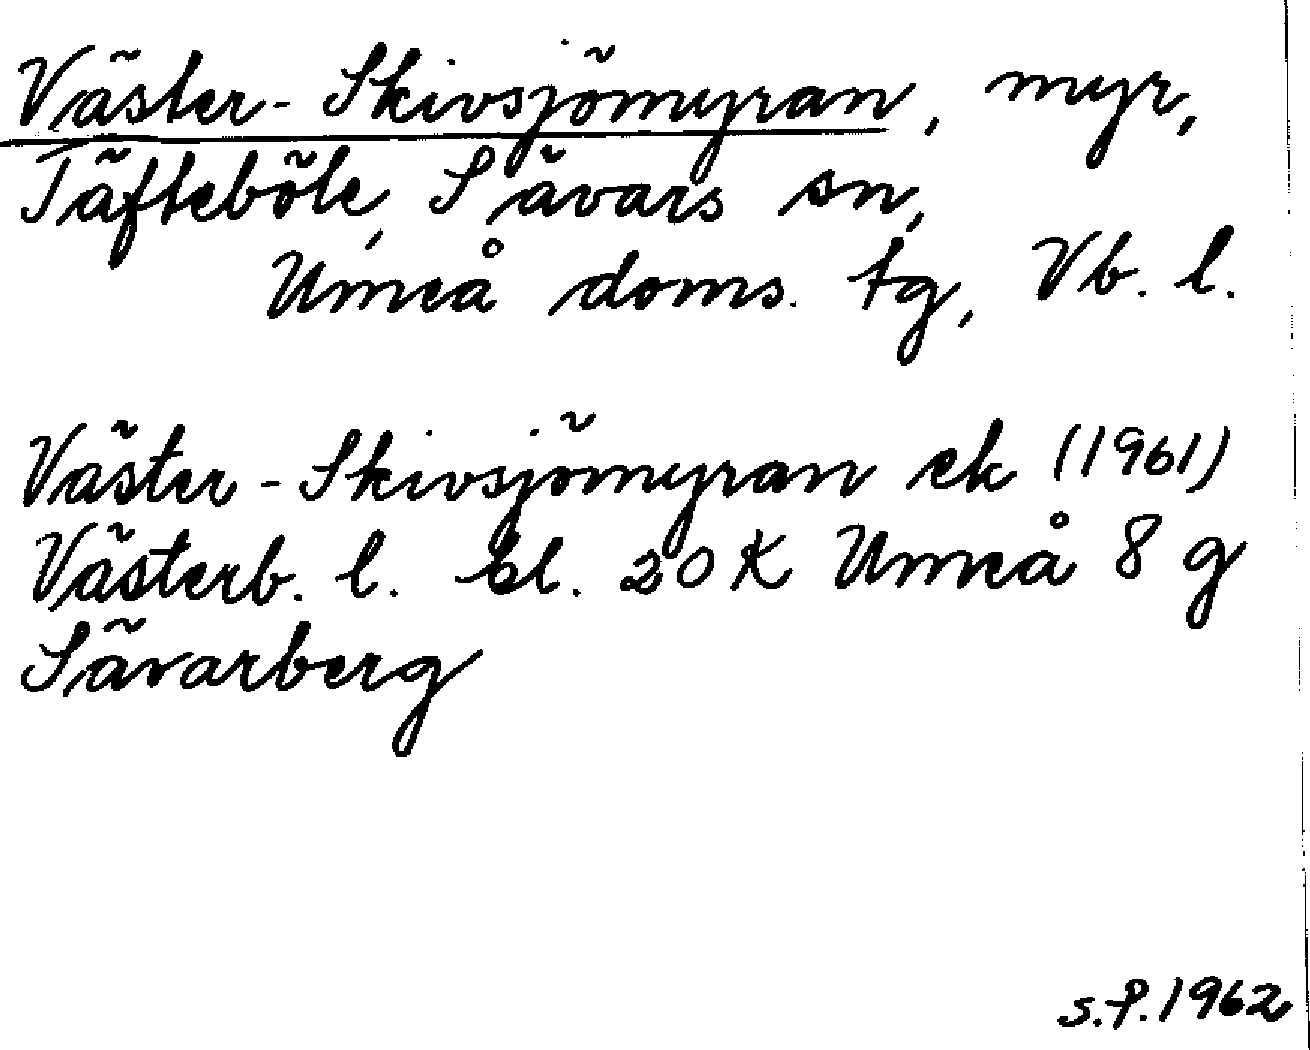 Väster-Skivsjömyran, myr,
Täfteböle, Sävars sn,
Umeå doms. tg, Vb. l.
Väster-Skivsjömyran ek (1961)
Västerb. l. bl. 20 K Umeå 8 g
Sävarberg
S.P. 1962